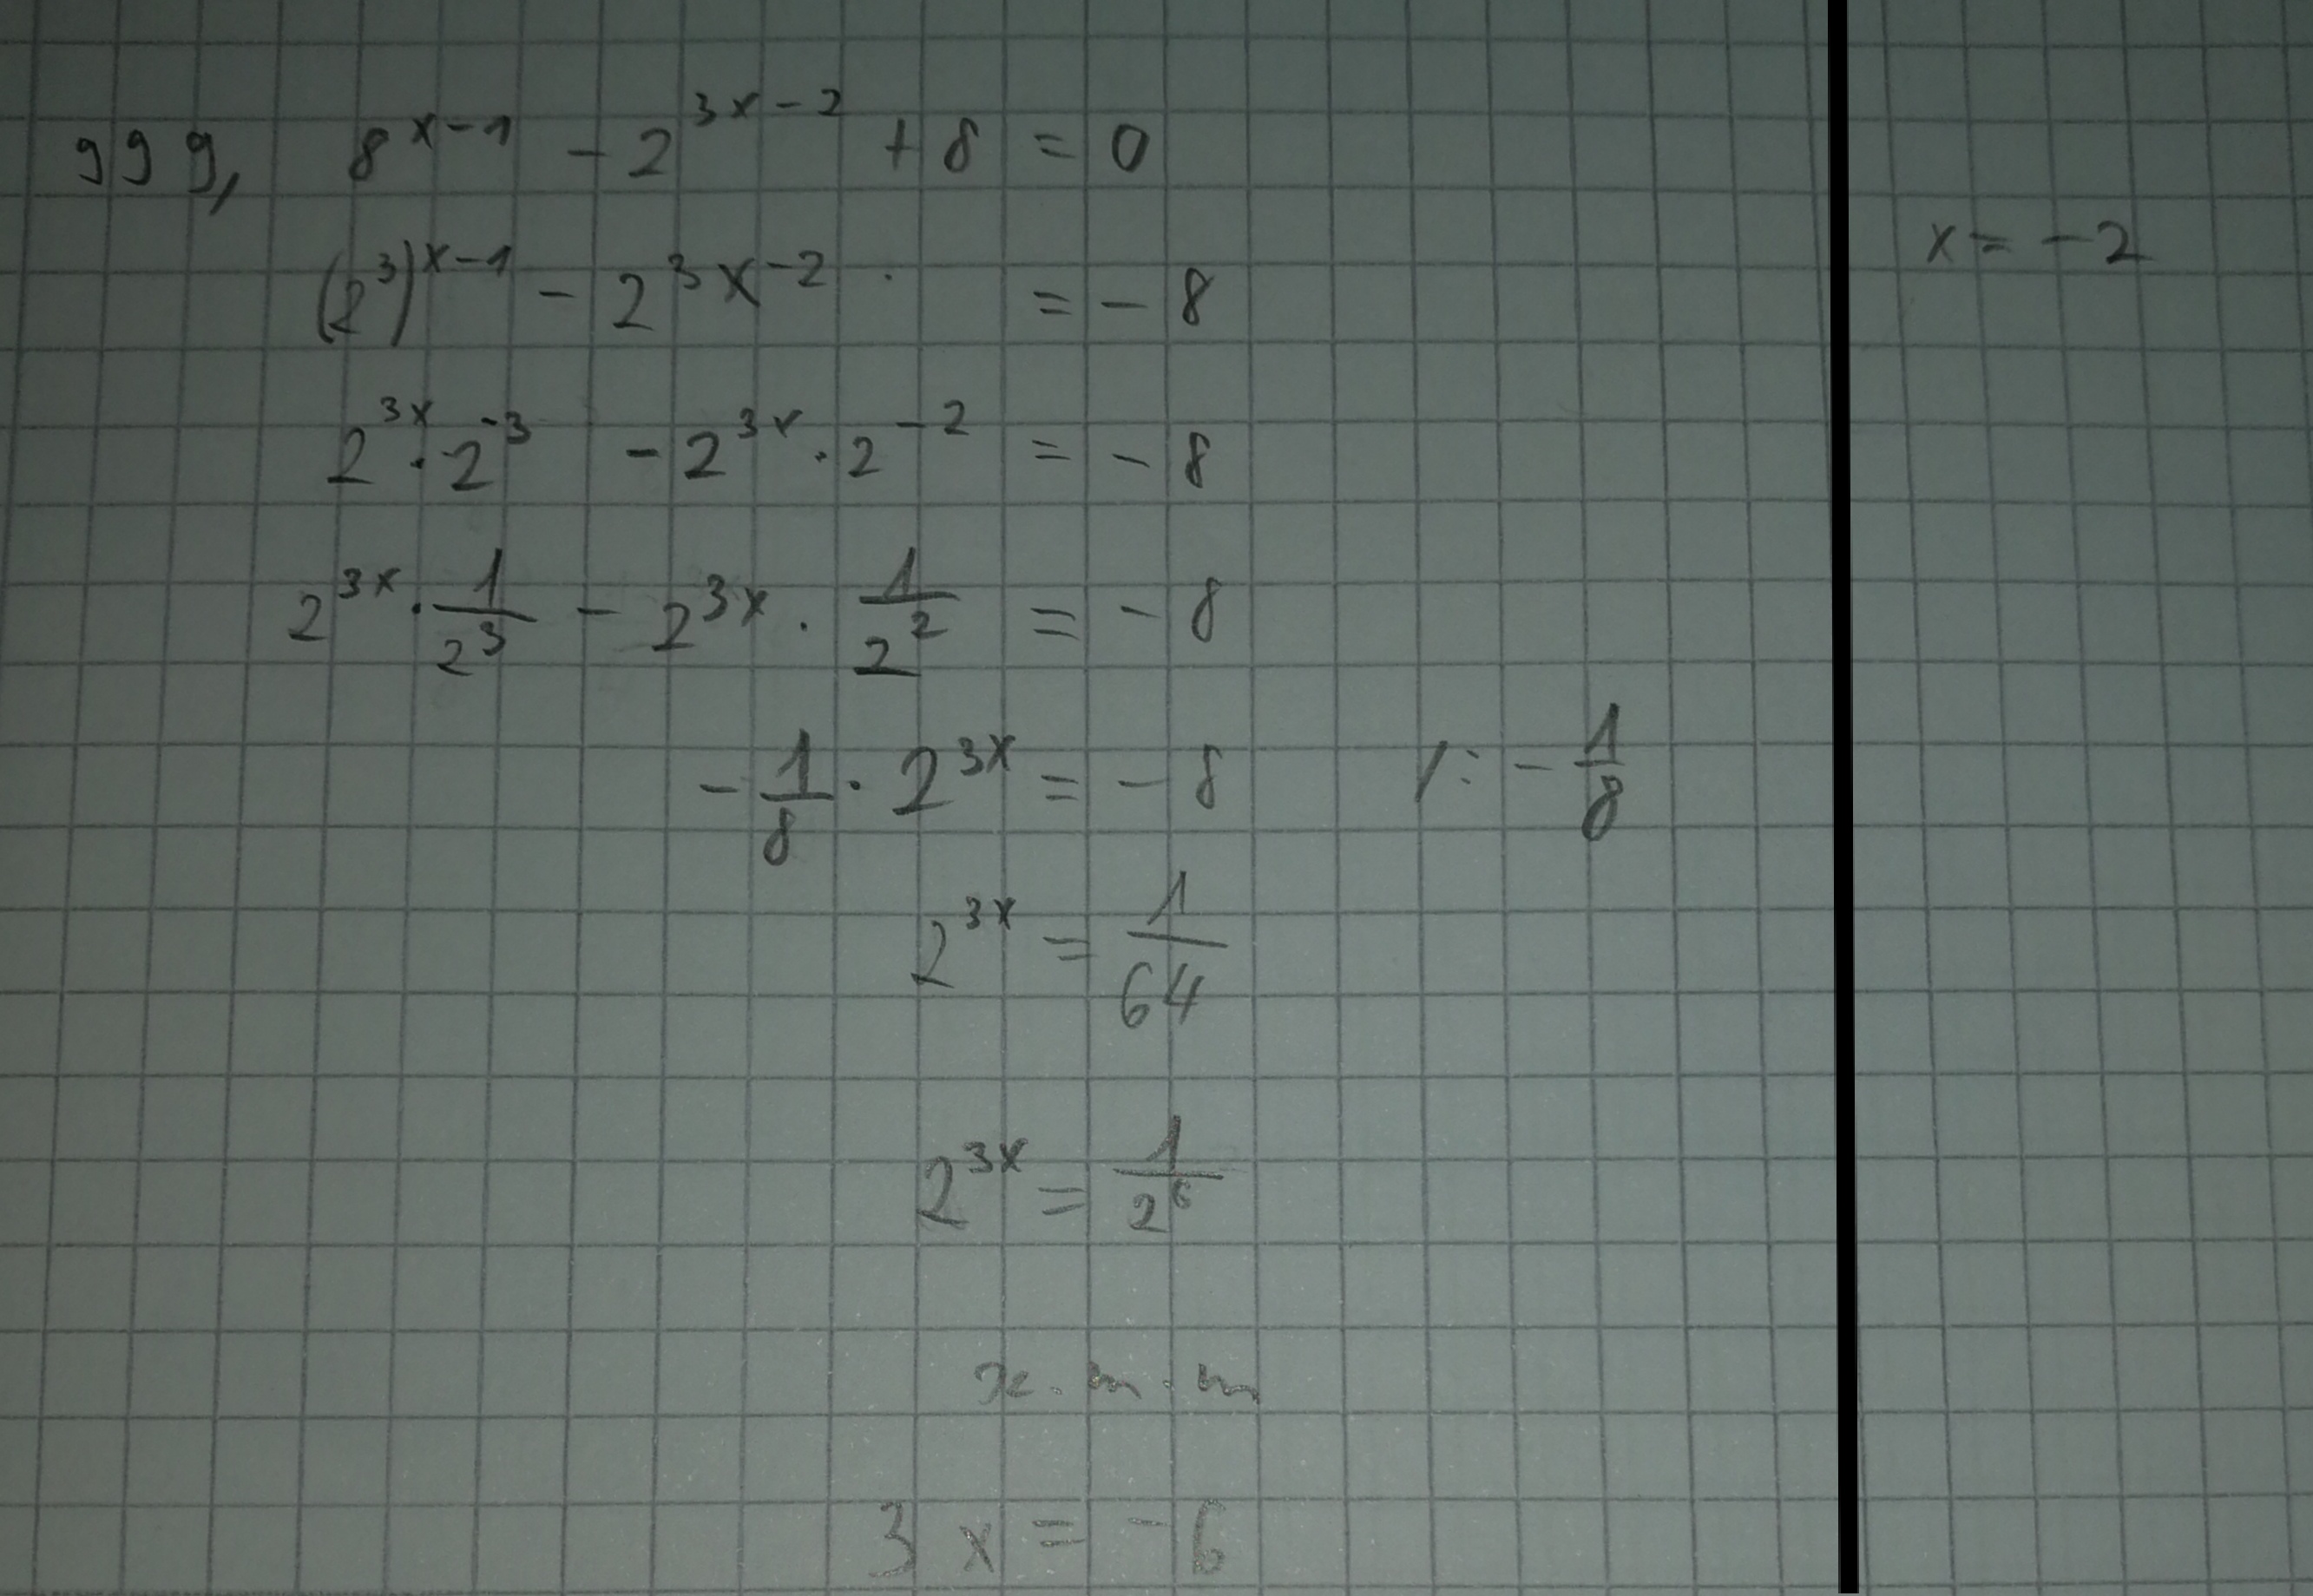 999, 8^{x-1} - 2^{3x-2} + 8 = 0
(2^3)^{x-1} - 2^{3x-2} = -8
2^{3x} · 2^{-3} - 2^{3x} · 2^{-2} = -8
2^{3x} · \frac{1}{2^3} - 2^{3x} · \frac{1}{2^2} = -8
-\frac{1}{8} · 2^{3x} = -8 /: -\frac{1}{8}
2^{3x} = \frac{1}{64}
2^{3x} = \frac{1}{2^6}
3x = -6
x = -2